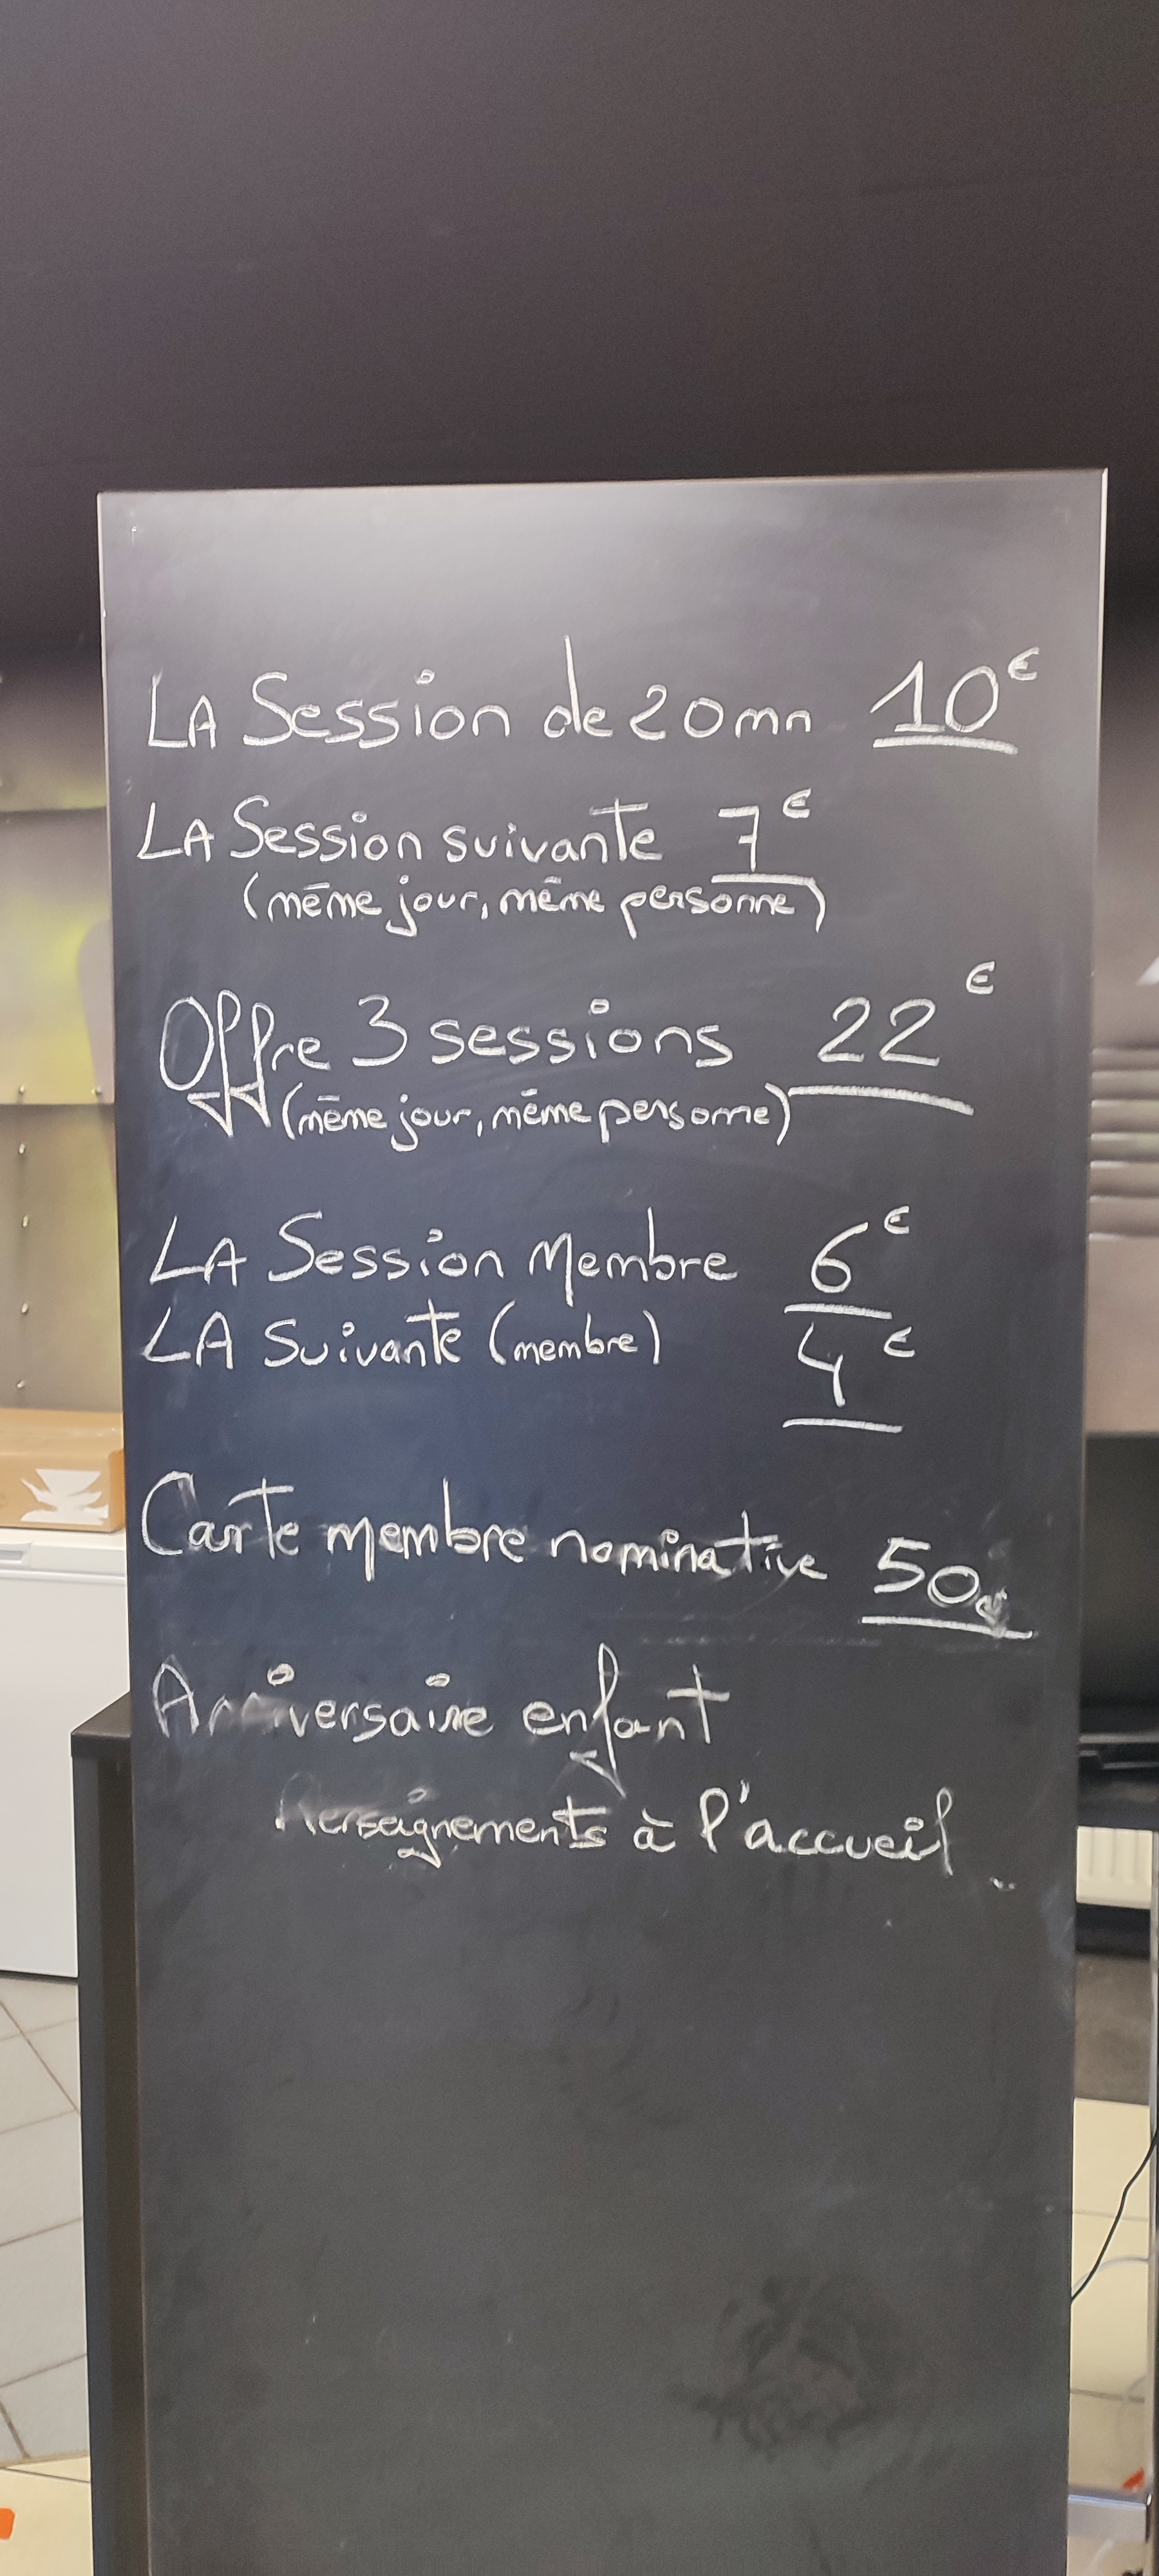 LA Session de 20mn 10€
LA Session suivante 7€
(même jour, même personne)
Offre 3 sessions 22€
(même jour, même personne)
LA Session Membre 6€
LA Suivante (membre) 4€
Carte membre nominative 50€
Anniversaire enfant
Renseignements à l'accueil